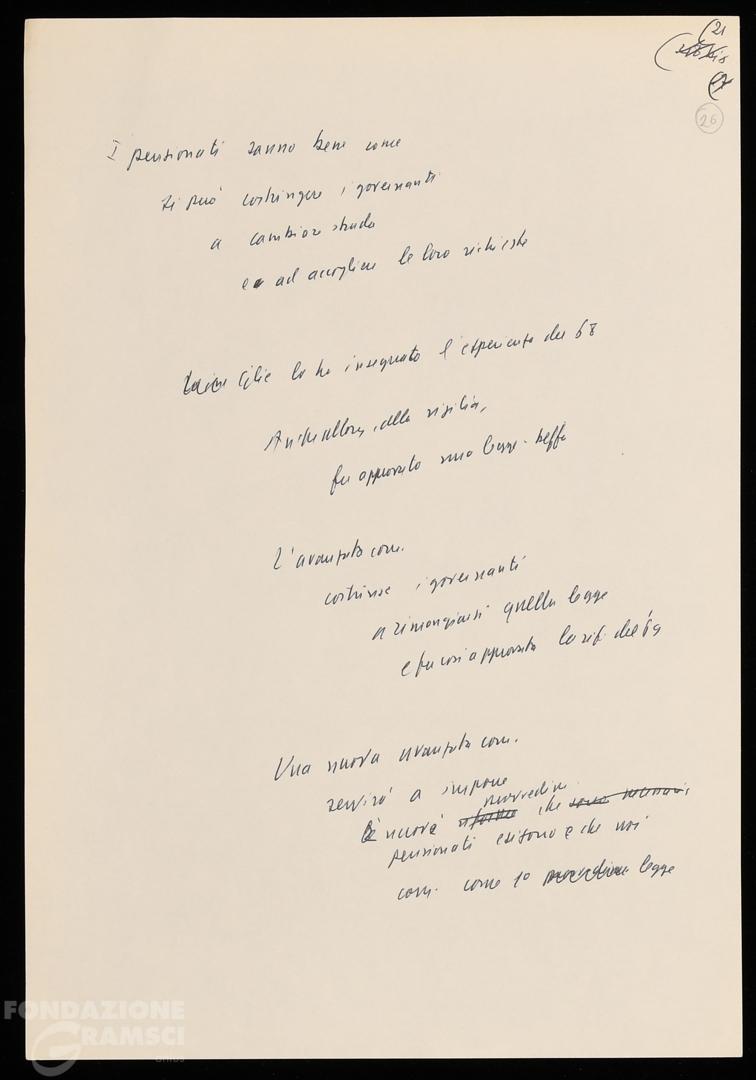 (21
26
I pensionati sanno bene come
si può costringere i governanti
a cambiare strada
ad accogliere le loro richieste
Glie lo ha insegnato l'esperienza del 68
Anche allora, alla vigilia,
fu approvata una legge-beffa
L'avanzata com.
costrinse i governanti
a rimangiarsi quella legge
e fu così approvata la rif. del 69
Una nuova avanzata com.
servirà a imporre
provvedim.
nuovi che
pensionati esigono e che noi
com. come 1a legge
FONDAZIONE
GRAMSCI
onlus